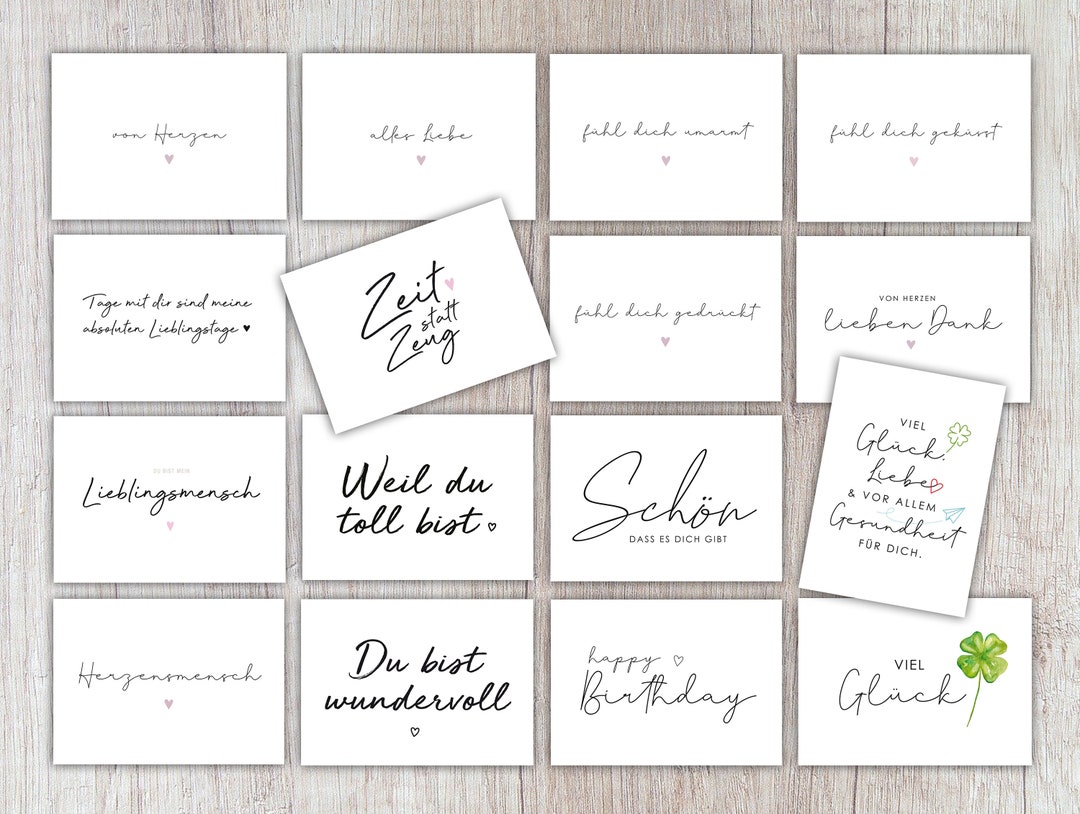 von Herzen
alles Liebe
fühl dich umarmt
fühl dich geküsst
Tage mit dir sind meine
absoluten Lieblingstage
Zeit
statt
Zeug
fühl dich gedrückt
VON HERZEN
lieben Dank
DU BIST MEIN
Lieblingsmensch
Weil du
toll bist
Schön
DASS ES DICH GIBT
VIEL
Glück,
Liebe
& VOR ALLEM
Gesundheit
FÜR DICH.
Herzensmensch
Du bist
wundervoll
happy
Birthday
VIEL
Glück